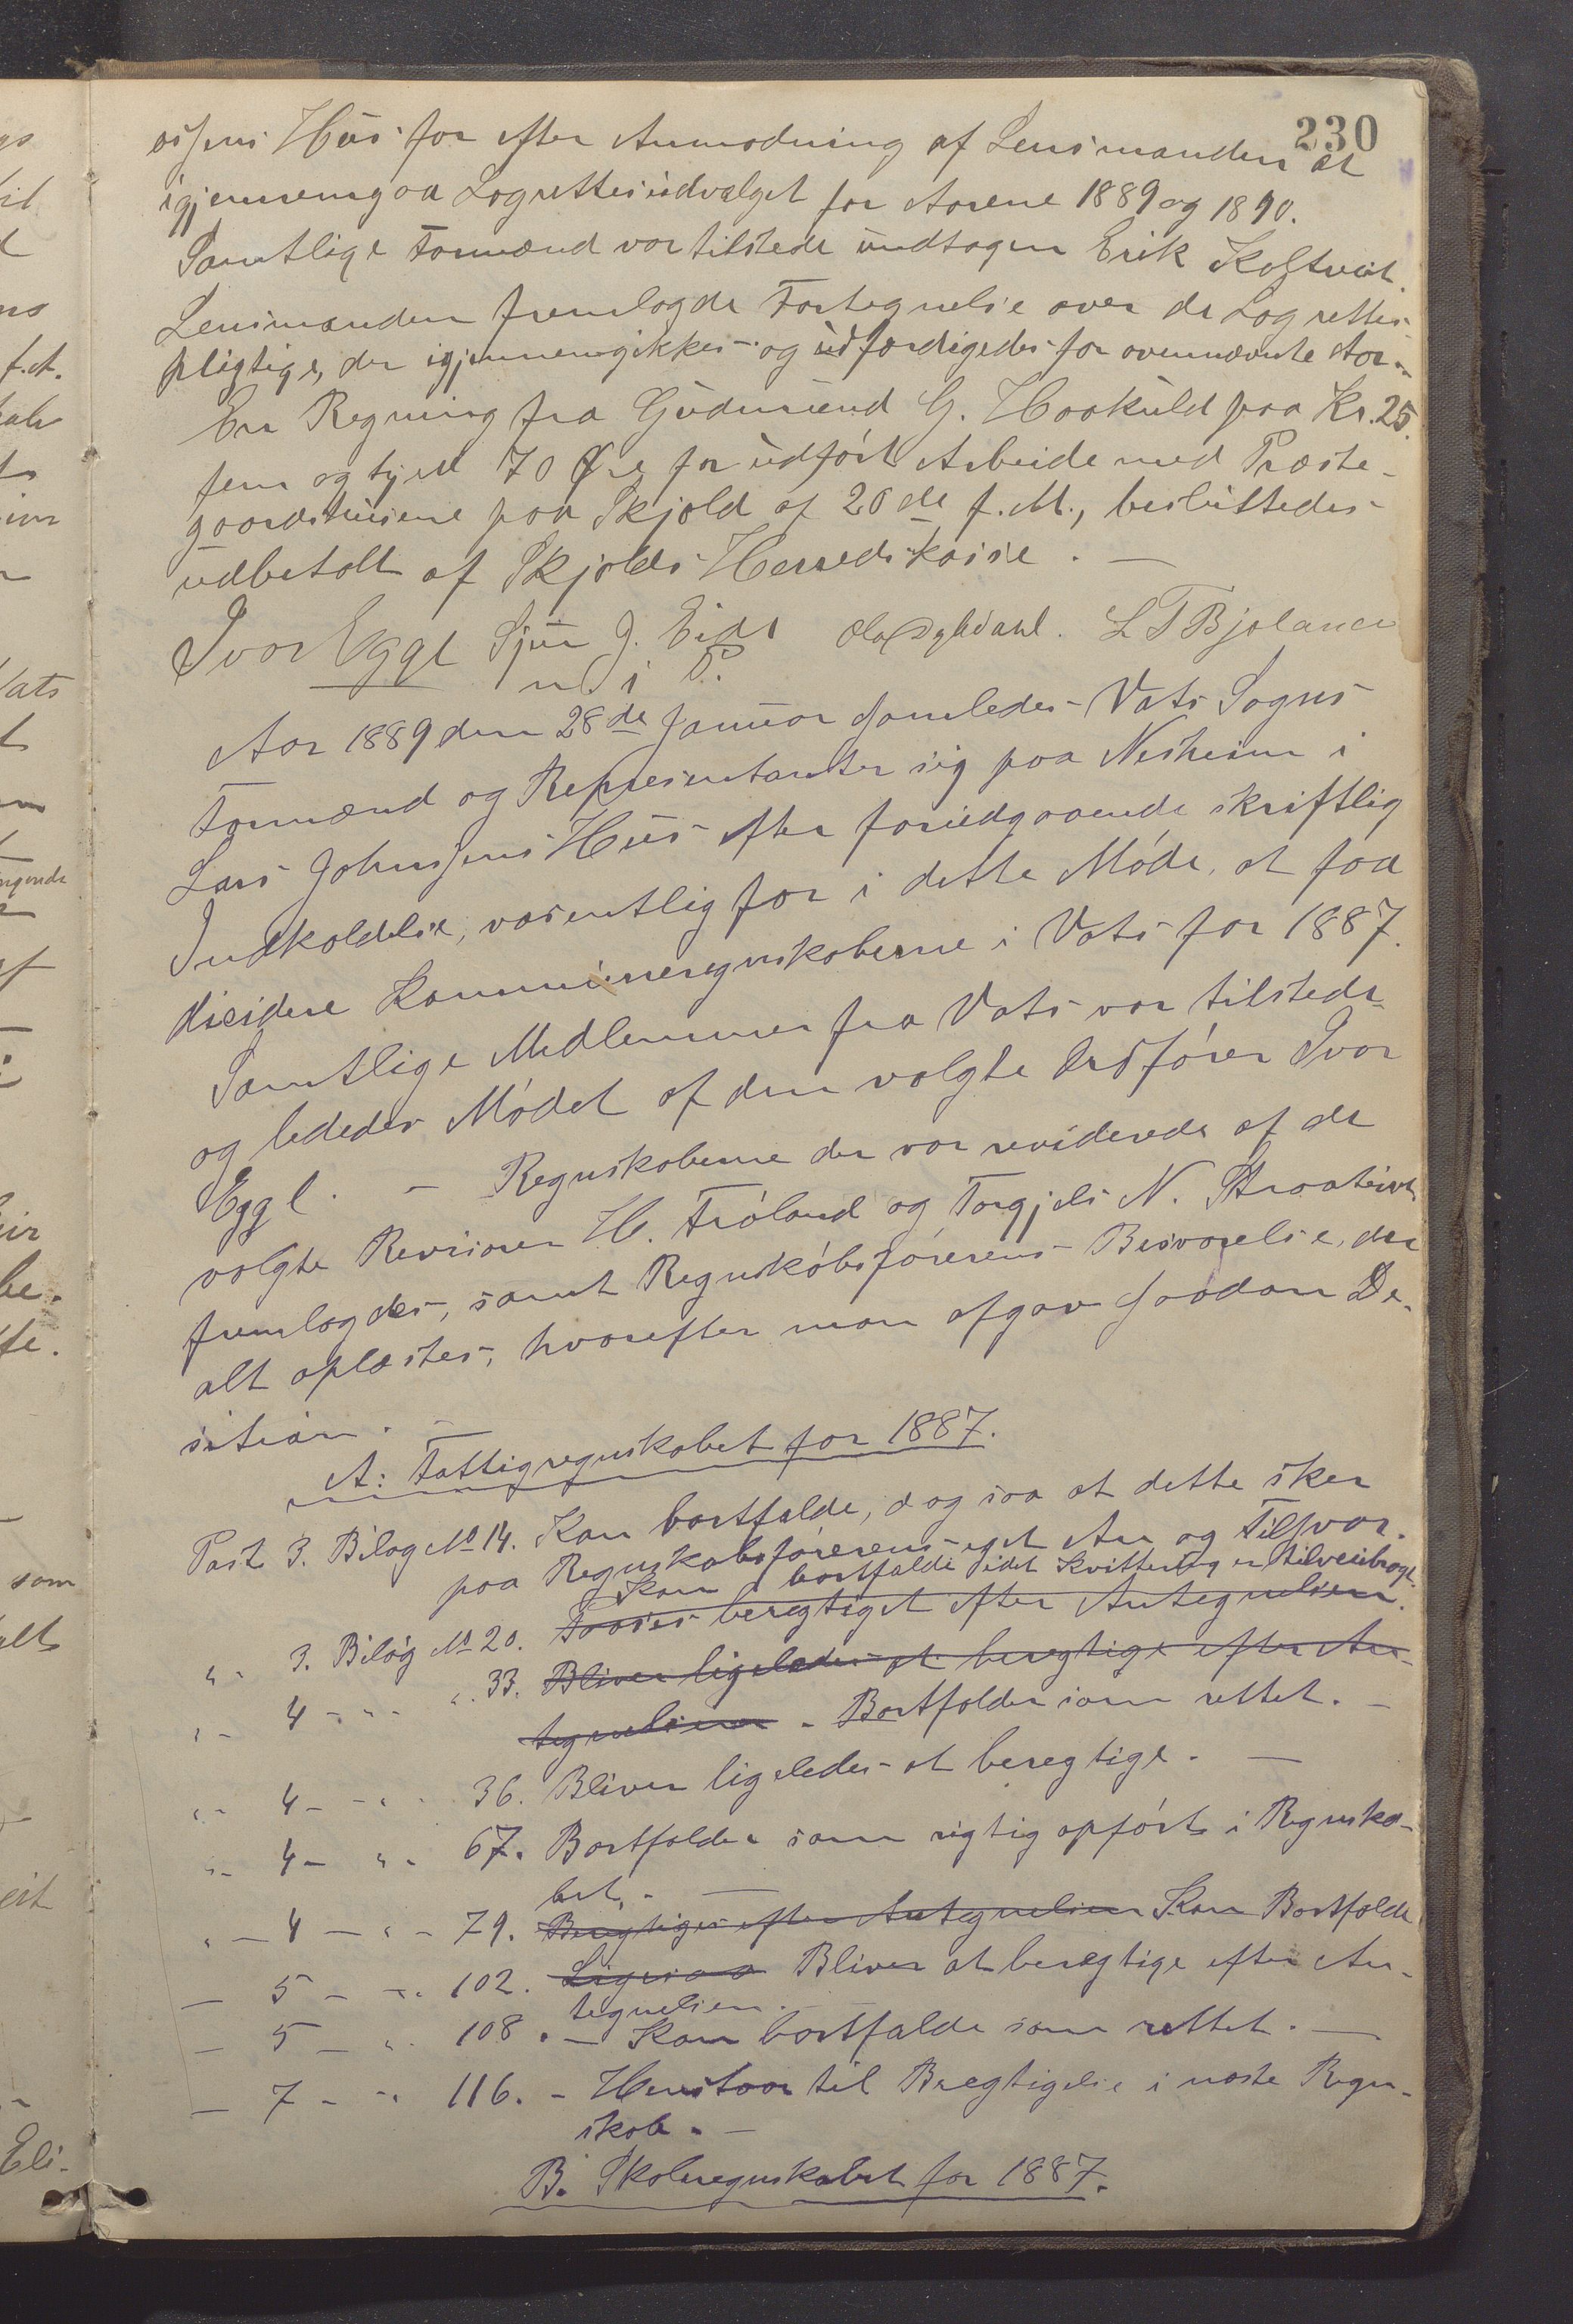 230
Hus for efter Anmodning af Lensmanden at
igjennemgaa Lagrettesudvalget for Aarene 1889 og 1890.
Samtlige Formænd var tilstede undtagen Erik Skeftveit.
Lensmanden fremlagde Fortegnelse over de Lagrettes-
pligtige, der igjennemgikkes og udfærdigedes for ovennævnte Aar.
En Regning fra Gudmund G. Haakuld paa Kr. 25.
fem og tyve 70 Øre for udført Arbeide med Præste-
gaardshusene paa Skjold af 20de f. M., besluttedes
udbetalt af Skjolds Herredskasse. —
Ivar Eggl Sjur J. Eide Ola L T Bjoland
m. i P.
Aar 1889 den 28de Januar samledes Vats Sogns
Formænd og Repræsentanter sig paa Nesheim i
Lars Johnsens Hus efter foriudgaaende skriftlig
Indkaldelse, væsentlig for i dette Møde, at faa
disidere Kommuneregnskaberne i Vats for 1887.
Samtlige Medlemmer fra Vats var tilstede
og lededes Mødet af den valgte Ordfører Ivar
Eggl. — Regnskaberne der var reviderede af de
valgte Revisorer H. Frøland og Torgjels N. Straateit
fremlagdes, samt Regnskabsførerens Besvarelse, der
alt oplæstes, hvorefter man afgav saadan De-
sition. —
A: Fattigregnskabet for 1887.
Post 3. Bilag No 14. Kan bortfalde, dog saa at dette sker
paa Regnskabsførerens eget An og Tilsvar.
Kan bortfalde idet Kvittering er tilveiebragt.
" - 3. Bilag No 20. Faaes beregtiget efter Antegnelsen.
" - 4 - " - ". 33. Bliver ligeledes at beregtige efter An-
tegnelsen - Bortfalder som rettet. -
" - 4 - - " - 36. Bliver ligeledes at beregtige. —
" - 4 - " - 67. Bortfalder som rigtig opført i Regnska-
bet. —
" - 4 — " - 79. Beregtiges efter Antegnelsen Kan Bortfalde
— 5 - - ". 102. Ligesaa Bliver at beregtige efter An-
tegnelsen. -
— 5 — ". 108. — Kan bortfalde som rettet. —
— 7 - - " 116. - Henstaar til Bregtigelse i næste Regn-
skab. —
B. Skoleregnskabet for 1887.